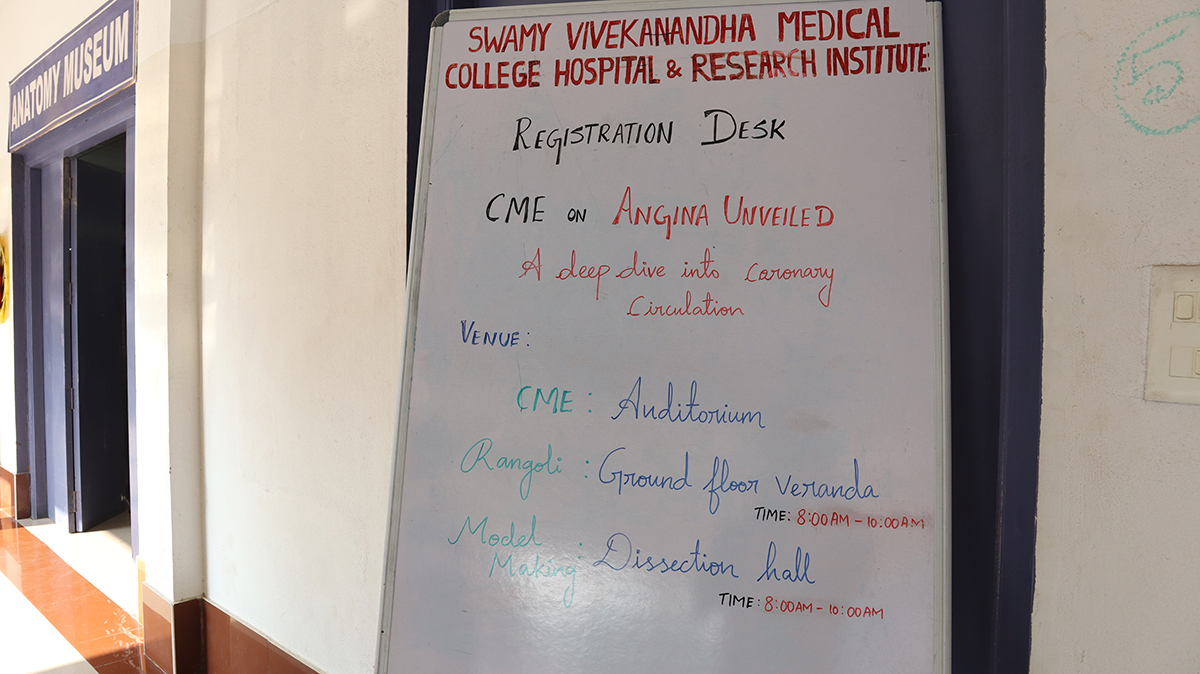 ANATOMY MUSEUM
SWAMY VIVEKANANDHA MEDICAL
COLLEGE HOSPITAL & RESEARCH INSTITUTE
REGISTRATION DESK
CME ON ANGINA UNVEILED
A deep dive into Caronary
Circulation
VENUE:
CME : Auditorium
Rangoli : Ground floor Veranda
TIME: 8:00AM - 10:00AM
Model
Making : Dissection hall
TIME: 8:00AM - 10:00AM
5